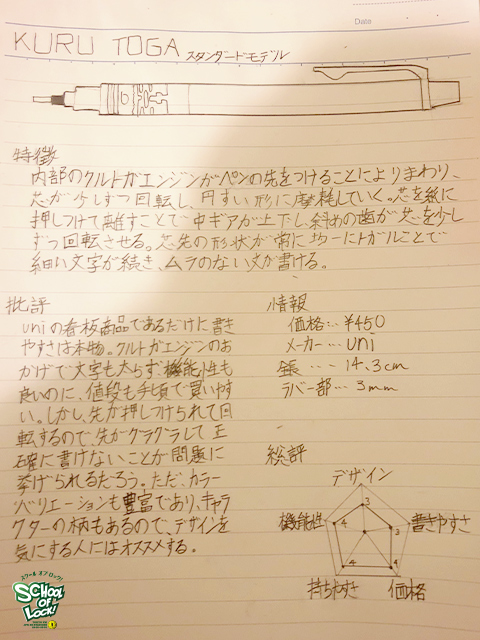 Date
KURU TOGA スタンダードモデル
特徴
内部のクルトガエンジンがペンの先をつけることによりまわり、
芯が少しずつ回転し、円すい形に摩耗していく。芯を紙に
押しつけて離すことで中ギアが上下し、斜めの歯が芯を少し
ずつ回転させる。芯先の形状が常に均一にトガルことで
細い文字が続き、ムラのない文が書ける。
批評
uniの看板商品であるだけに書き
やすさは本物。クルトガエンジンのお
かげで文字も太らず、機能性も
良いのに、値段も手頃で買いやす
い。しかし、先が押しつけられて回
転するので、先がグラグラして正
確に書けないことが問題に
挙げられるだろう。ただ、カラー
バリエーションも豊富であり、キャラ
クターの柄もあるので、デザインを
気にする人にはオススメする。
情報
価格…¥450
メーカー…uni
全長…14.3cm
ラバー部…3mm
総評
デザイン
3
機能性
4
3
書きやすさ
4
4
持ちやすさ
価格
スクール オブ ロック!
SCHOOL OF LOCK!